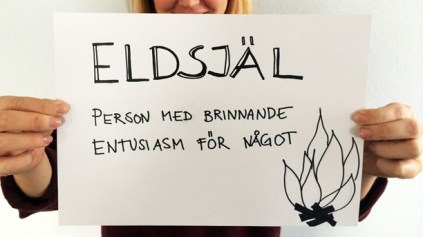 ELDSJÄL
PERSON MED BRINNANDE
ENTUSIASM FÖR NÅGOT